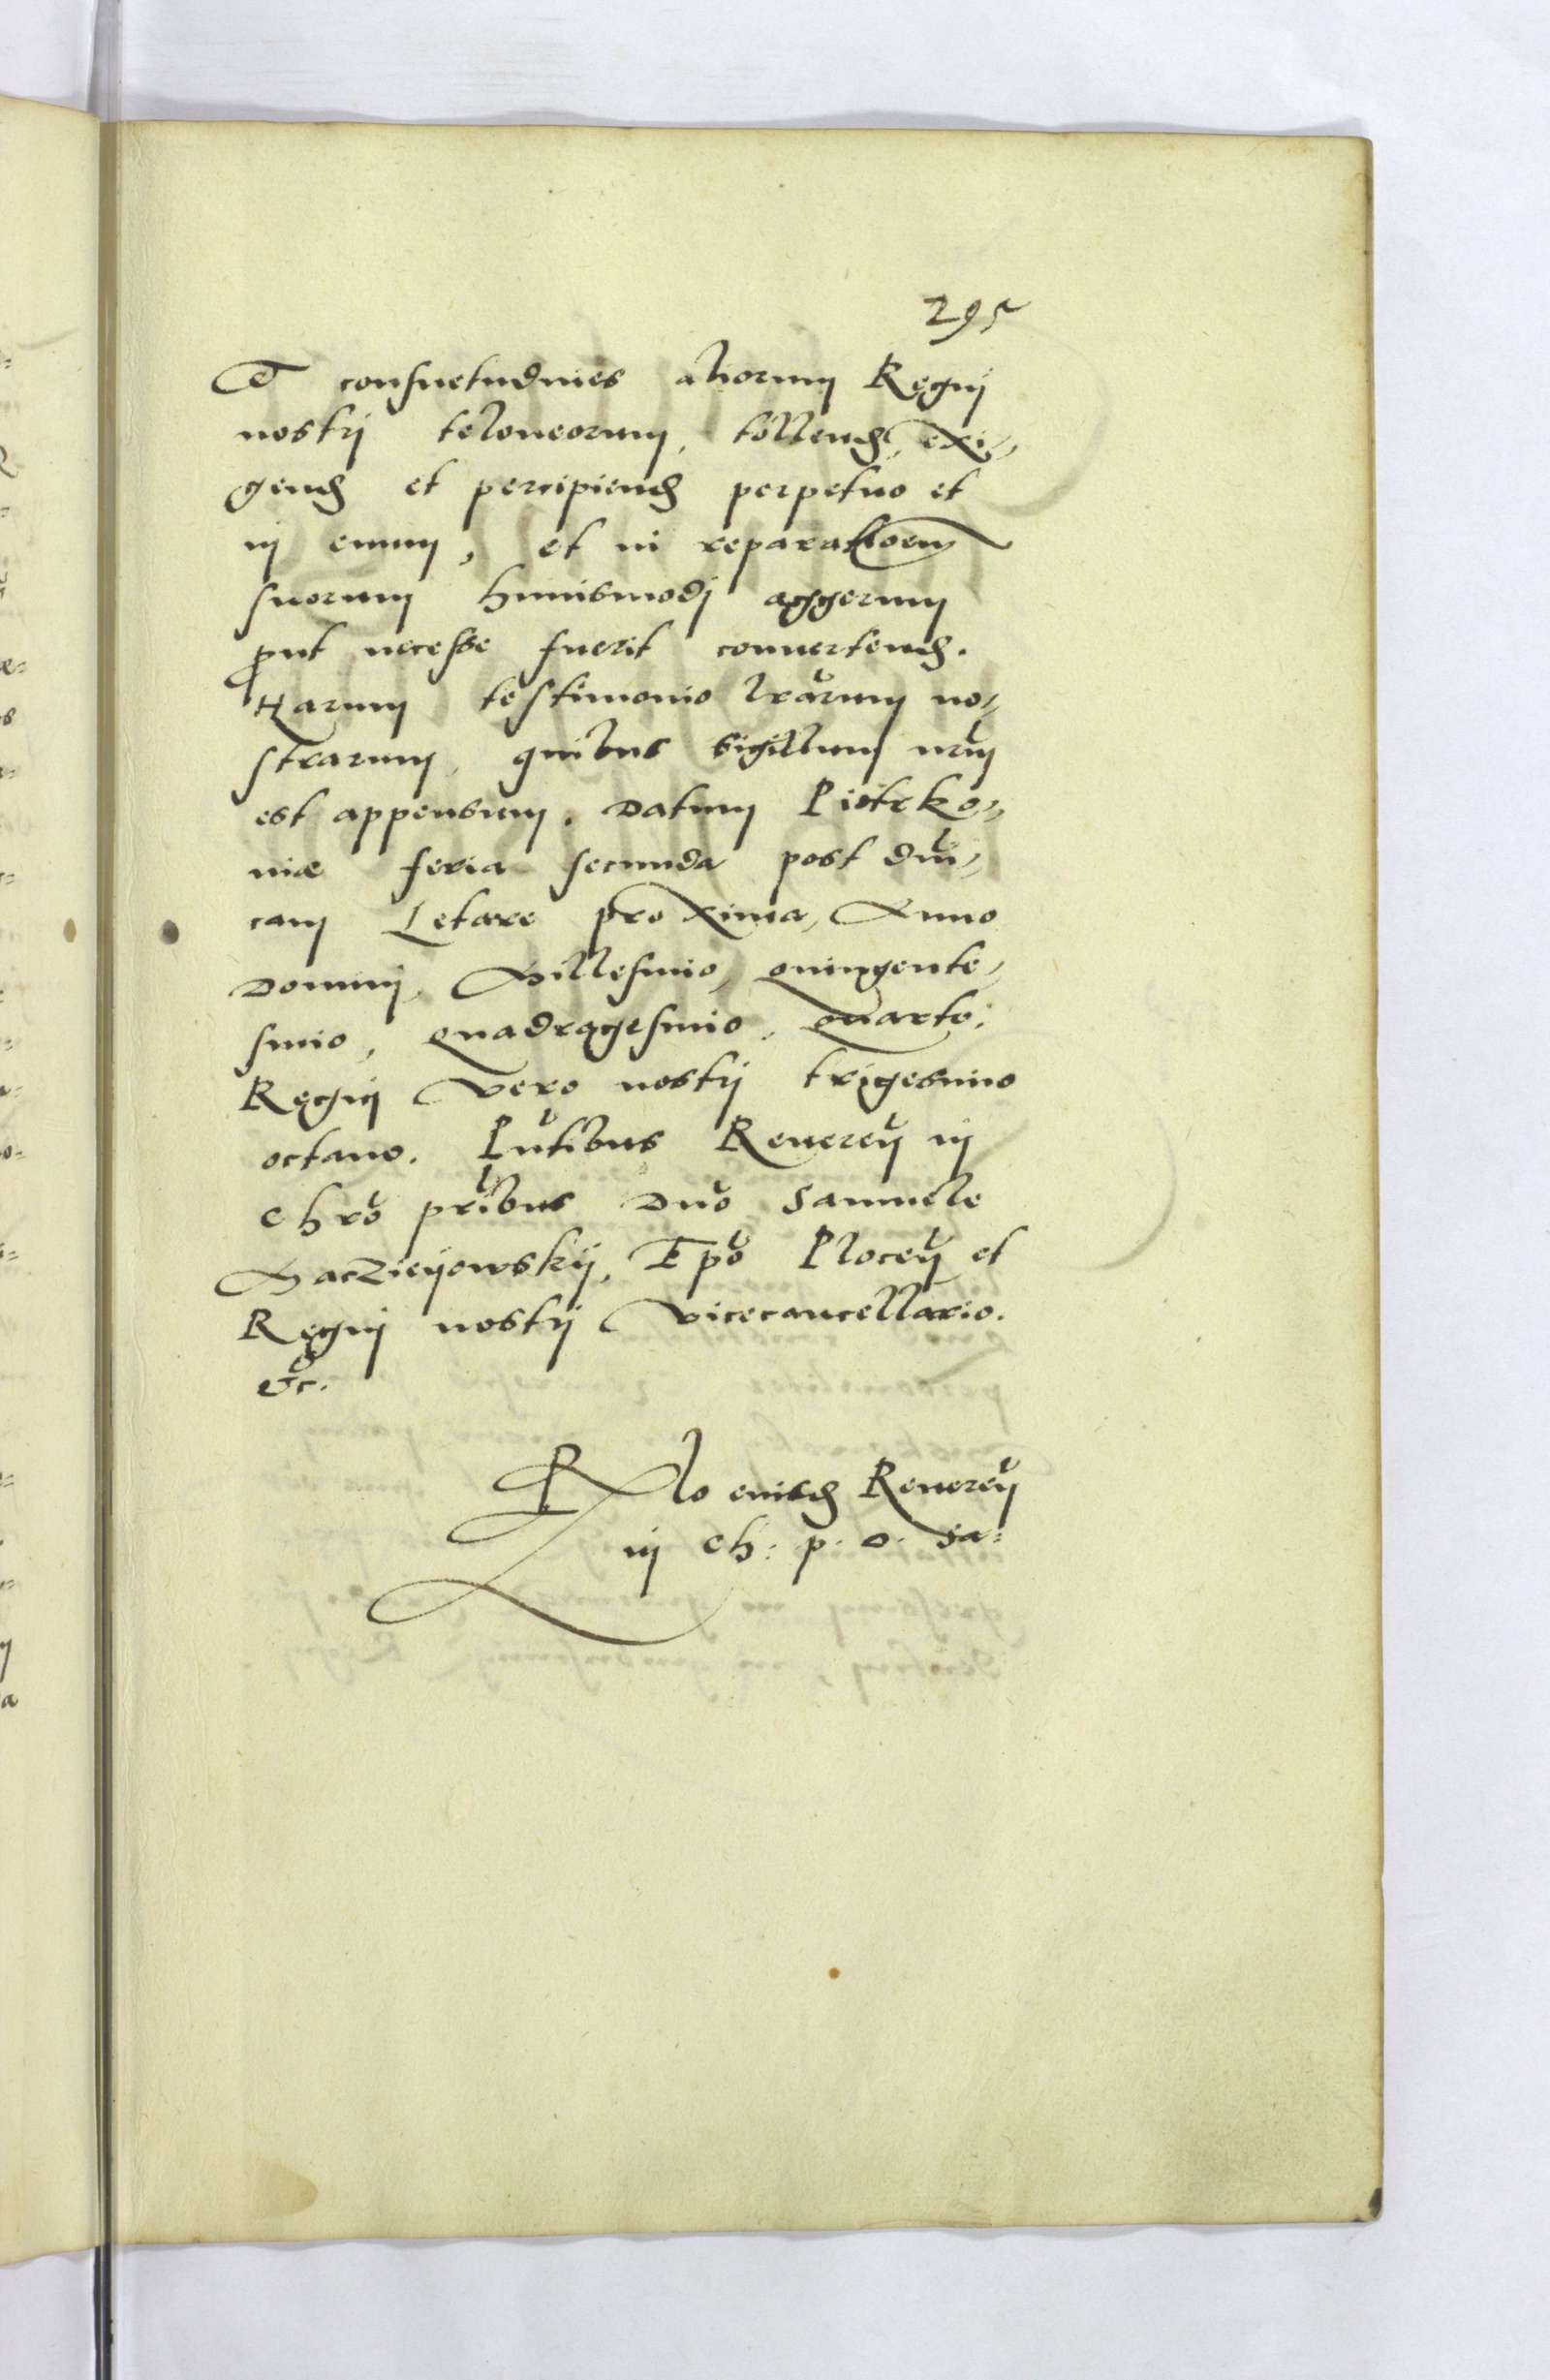 295
et consuetudines aliorum Regni
nostri teloneorum, tollend, exi-
gend et percipiend perpetuo et
in euum, et in reparatioem
suorum huiusmodi aggerum
put necesse fuerit conuertend.
Harum testimonio lrarum no-
strarum, quibus sigillum nrum
est appensum. Datum Piotrko-
uiæ feria secunda post dni-
cam Letare proxima, Anno
Domini, Millesimo, quingente-
simo, quadragesimo, quarto,
Regni vero nostri trigesimo
octauo. Pntibus Reueren in
Chro pribus Dno Samuele
Maczieyowskij, Epo Plocen et
Regni nostri Vicecancellario.
etc.
Rlo eiusd Reueren
in Ch: p. D. Sa: